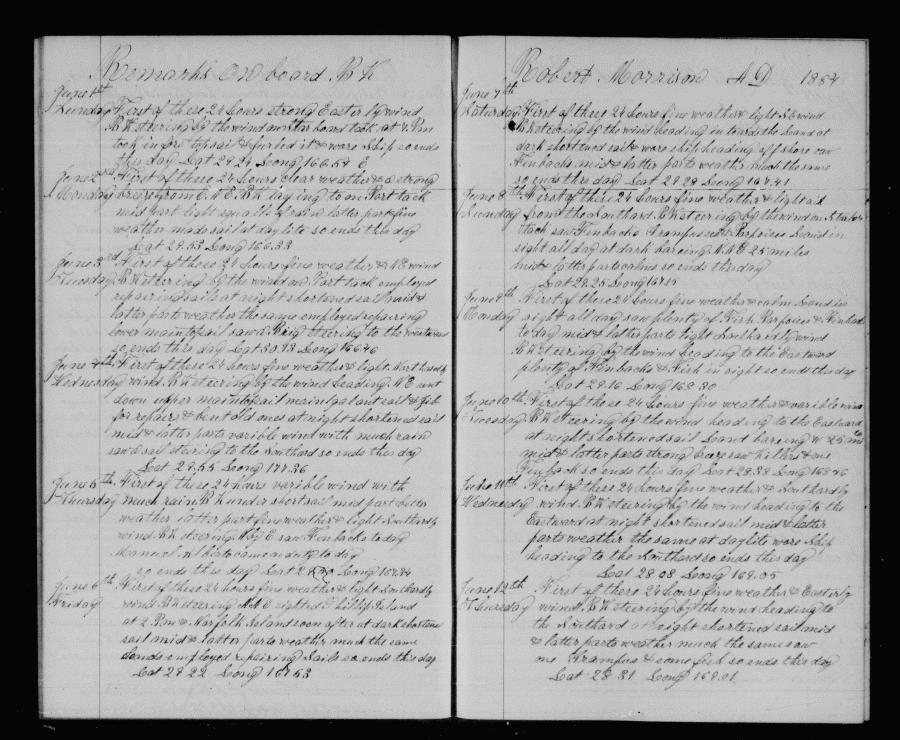 Remarks on board Bk
June 1st First of these 24 hours strong Easterly wind
Sunday Bk steering by the wind on Star board tack at 4 Pm
took in fore topsail & furled it & wore ship so ends
this day Lat 29.24 Long 166.54 E
June 2nd First of these 24 hours clear weather & a strong
Monday breeze from E.N.E. Bk laying to on Port tack
mid part light squalls of rain latter part fine
weather made sail at day lite so ends this day
Lat 29.53 Long 166.33
June 3rd First of these 24 hours fine weather & N.E wind
Tuesday Bk steering by the wind on Port tack employed
repairing sails at night shortened sail mid &
latter parts weather the same employed repairing
lower maintopsail saw a Brig steering to the westward
so ends this day Lat 30.13 Long 166.46
June 4th First of these 24 hours fine weather & light Northerly
Wednesday wind Bk steering by the wind heading N E sent
down upper maintopsail maintgalant sail & Jib
for repairs & bent old ones at night shortened sail
mid & latter parts varible wind with much rain
saw a sail steering to the Southard so ends this day
Lat 29.55 Long 171.36
June 5th First of these 24 hours varible wind with
Thursday much rain Bk under short sail mid part better
weather latter part fine weather & light Southerly
wind Bk steering W by E saw Finbacks today
Manuel came on duty to day
so ends this day Lat Long 167.34
June 6th First of these 24 hours fine weather & light Southerly
Friday wind Bk steering sighted Phillip Island
at 2 Pm & Norfolk Island soon after at dark shortened
sail mid & latter parts weather much the same
hands employed repairing Sails so ends this day
Lat 29 22 Long 167.53
Robert Morrison A D 1884
June 7th
Saturday First of these 24 hours fine weather & light S.E wind
Bk steering by the wind heading in towards the Land at
dark shortened sail & wore ship heading off shore saw
Finbacks mid & latter parts weather much the same
so ends this day Lat 29 29 Long 167.41
June 8th First of these 24 hours fine weather & light air
Sunday from the Southard Bk steering by the wind on Starbord
tack saw Finbacks Grampuses & Porpoises Land in
sight all day at dark bareing W.N.E 25 miles
mid & latter parts calms so ends this day
Lat 29.25 Long 167.
June 9th First of these 24 hours fine weather & calm Land in
Monday sight all day saw plenty of Fish Porpoises & Finbacks
to day mid & latter parts light Southardly wind
Bk steering by the wind heading to the Eastward
plenty of Finbacks & Fish in sight so ends this day
Lat 29.16 Long 168.30
June 10th First of these 24 hours fine weather & varible wind
Tuesday Bk steering by the wind heading to the Eastward
at night shortened sail Land bareing W 25 miles
mid & latter parts strong breeze saw Killers & one
Finback so ends this day Lat 28.38 Long 168.46
June 11th First of these 24 hours fine weather & Southardly
Wednesday wind Bk steering by the wind heading to the
Eastward at night shortened sail mid & latter
parts weather the same at daylite wore Ship
heading to the Southard so ends this day
Lat 28 08 Long 169.05
June 12th First of these 24 hours fine weather & Easterly
Thursday wind Bk steering by the wind heading to
the Southard at night shortened sail mid
& latter parts weather much the same saw
one Grampus & some fish so ends this day
Lat 28 31 Long 169.01